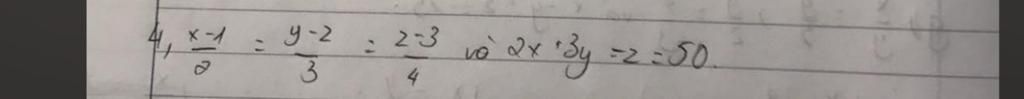 4, \frac{x-1}{2} = \frac{y-2}{3} = \frac{z-3}{4} và 2x+3y-z=50.